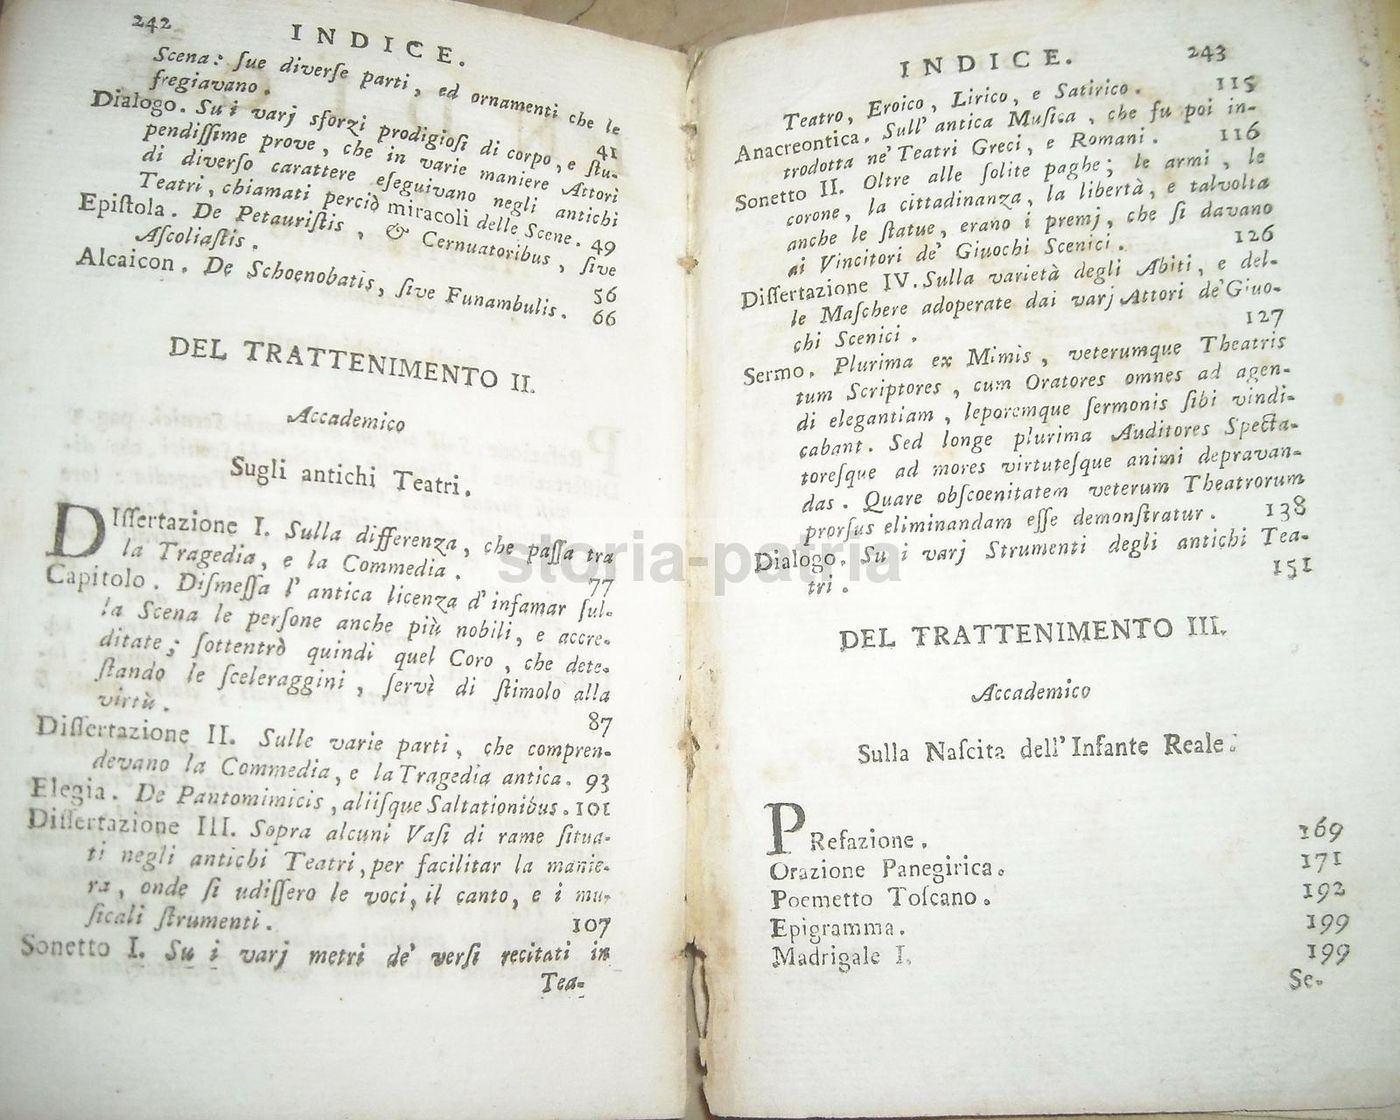 242
INDICE.
Scena: ſue diverſe parti, ed ornamenti che le
fregiavano. 41
Dialogo. Su i varj sforzi prodigioſi di corpo, e ſtu-
pendiſſime prove, che in varie maniere Attori
di diverſo carattere eſeguivano negli antichi
Teatri, chiamati perciò miracoli delle Scene. 49
Epiſtola. De Petauriſtis, & Cernuatoribus, ſive
Aſcoliaſtis. 56
Alcaicon. De Schoenobatis, ſive Funambulis. 66
DEL TRATTENIMENTO II.
Accademico
Sugli antichi Teatri.
DIſſertazione I. Sulla differenza, che paſſa tra
la Tragedia, e la Commedia. 77
Capitolo. Diſmeſſa l'antica licenza d'infamar ſul-
la Scena le perſone anche più nobili, e accre-
ditate; ſottentrò quindi quel Coro, che dete-
ſtando le ſceleraggini, ſervì di ſtimolo alla
virtù. 87
Diſſertazione II. Sulle varie parti, che compren-
devano la Commedia, e la Tragedia antica. 93
Elegia. De Pantomimicis, aliiſque Saltationibus. 101
Diſſertazione III. Sopra alcuni Vaſi di rame ſitua-
ti negli antichi Teatri, per facilitar la manie-
ra, onde ſi udiſſero le voci, il canto, e i mu-
ſicali ſtrumenti. 107
Sonetto I. Su i varj metri de' verſi recitati in
Tea-
INDICE. 243
Teatro, Eroico, Lirico, e Satirico. 115
Anacreontica. Sull' antica Muſica, che fu poi in-
trodotta ne' Teatri Greci, e Romani. 116
Sonetto II. Oltre alle ſolite paghe; le armi, le
corone, la cittadinanza, la libertà, e talvolta
anche le ſtatue, erano i premj, che ſi davano
ai Vincitori de' Giuochi Scenici. 126
Diſſertazione IV. Sulla varietà degli Abiti, e del-
le Maſchere adoperate dai varj Attori de' Giuo-
chi Scenici. 127
Sermo. Plurima ex Mimis, veterumque Theatris
tum Scriptores, cum Oratores omnes ad agen-
di elegantiam, leporemque ſermonis ſibi vindi-
cabant. Sed longe plurima Auditores Specta-
toreſque ad mores virtuteſque animi depravan-
das. Quare obſcoenitatem veterum Theatrorum
prorſus eliminandam eſſe demonſtratur. 138
Dialogo. Su i varj Strumenti degli antichi Tea-
tri. 151
DEL TRATTENIMENTO III.
Accademico
Sulla Naſcita dell'Infante Reale.
PRefazione. 169
Orazione Panegirica. 171
Poemetto Toſcano. 192
Epigramma. 199
Madrigale I. 199
Se-
storia-patria